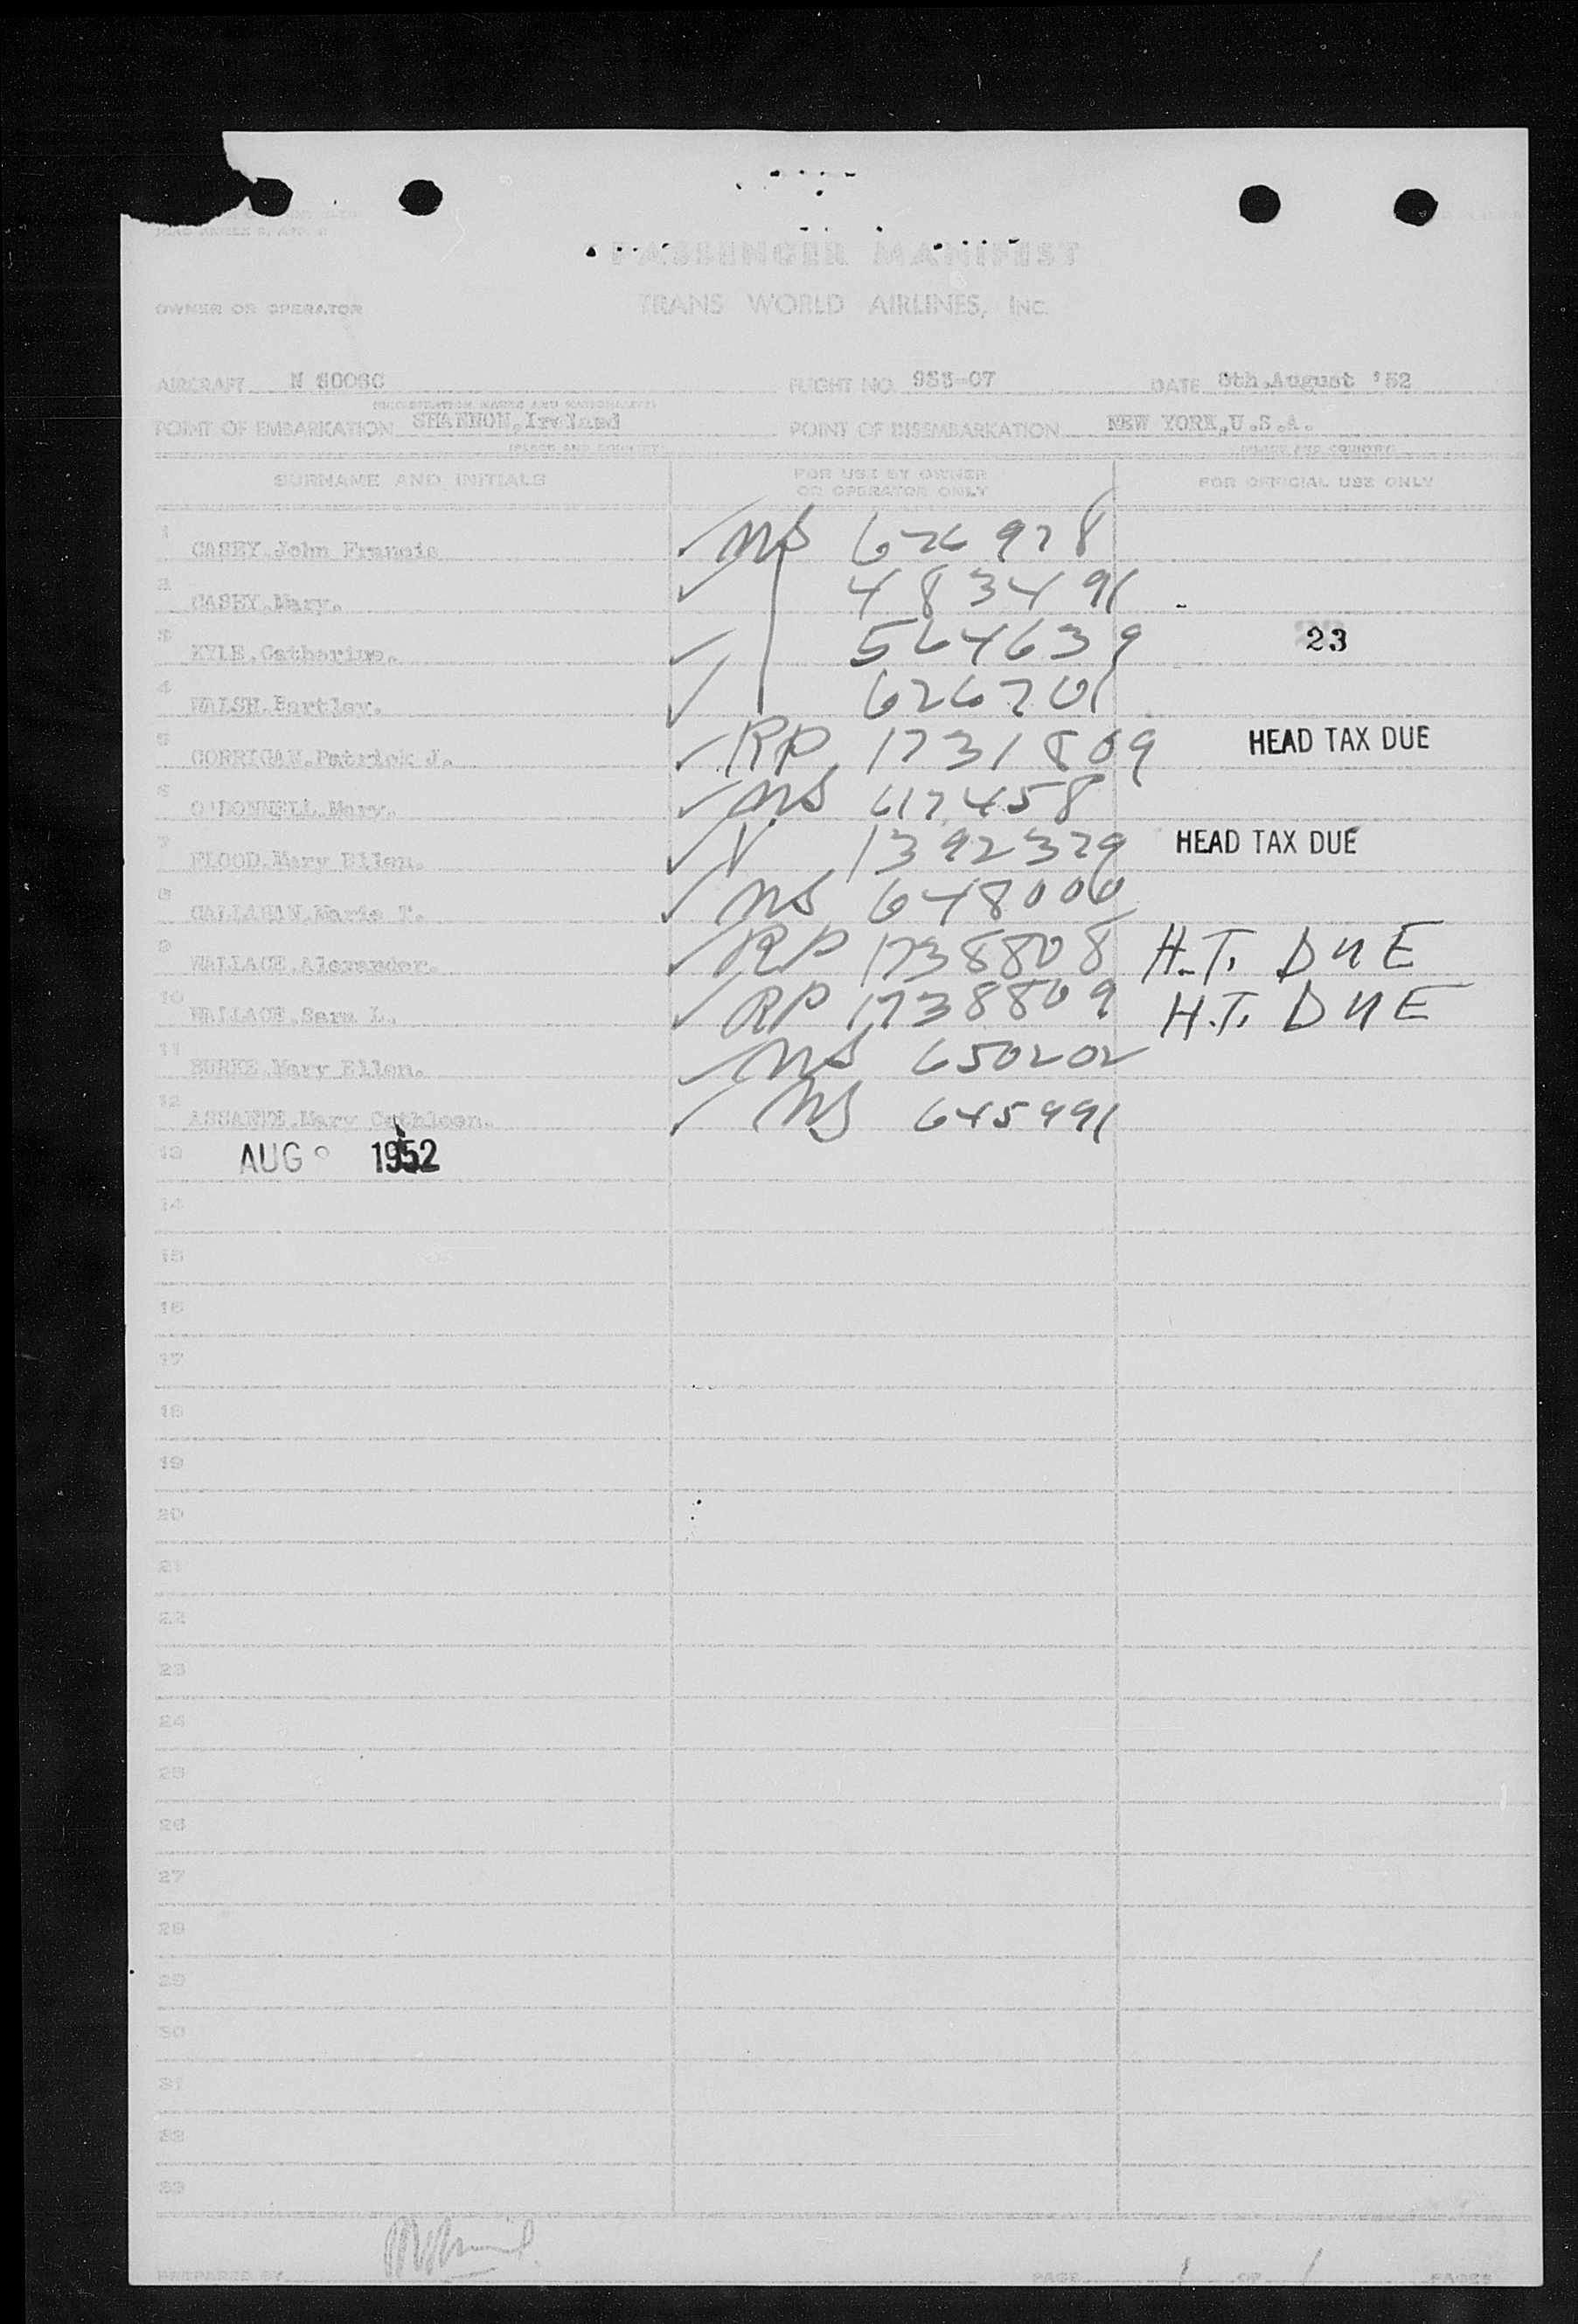 PASSENGER MANIFEST
OWNER OR OPERATOR TRANS WORLD AIRLINES, INC.
AIRCRAFT N 6006C FLIGHT NO. 955-07 DATE 8th.August '52
(REGISTRATION MARKS AND NATIONALITY)
POINT OF EMBARKATION SHANNON,Ireland POINT OF DISEMBARKATION NEW YORK,U.S.A.
(PLACE AND COUNTRY) (PLACE AND COUNTRY)
SURNAME AND INITIALS FOR USE BY OWNER OR OPERATOR ONLY FOR OFFICIAL USE ONLY
1 CASEY,John Francis ✓ NS 626978
2 CASEY,Mary. ✓ 483491
3 KYLE,Catharine. ✓ 564639 23
4 WALSH,Bartley. ✓ 626701
5 CORRIGAN,Patrick J. ✓ RP 1731809 HEAD TAX DUE
6 O'DONNELL,Mary. ✓ NS 617458
7 FLOOD,Mary Ellen. ✓ V 1392379 HEAD TAX DUE
8 CALLAHAN,Marie T. ✓ NS 648000
9 WALLACE,Alexander. ✓ RP 1738808 H.T. DUE
10 WALLACE,Sara L. ✓ RP 1738809 H.T. DUE
11 BURKE,Mary Ellen. ✓ NS 650202
12 ASSANTE,Mary Cathleen. ✓ NS 645991
13 AUG 1952
14
15
16
17
18
19
20
21
22
23
24
25
26
27
28
29
30
31
32
33
PREPARED BY PAGE 1 OF 1 PAGES